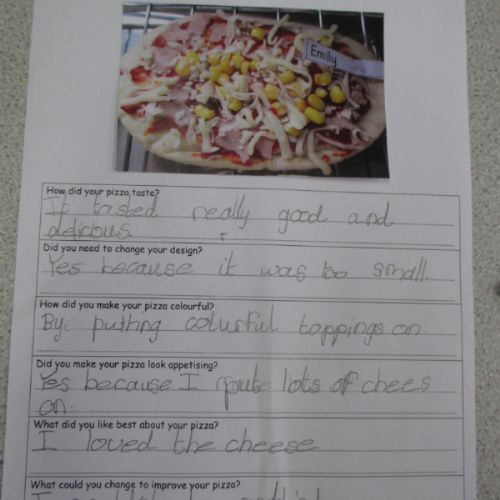 Emily
How did your pizza taste?
It tasted really good and
delicious
Did you need to change your design?
Yes because it was too small.
How did you make your pizza colourful?
By putting colurful toppings on.
Did you make your pizza look appetising?
Yes because I pute lots of chees
on.
What did you like best about your pizza?
I loved the cheese
What could you change to improve your pizza?